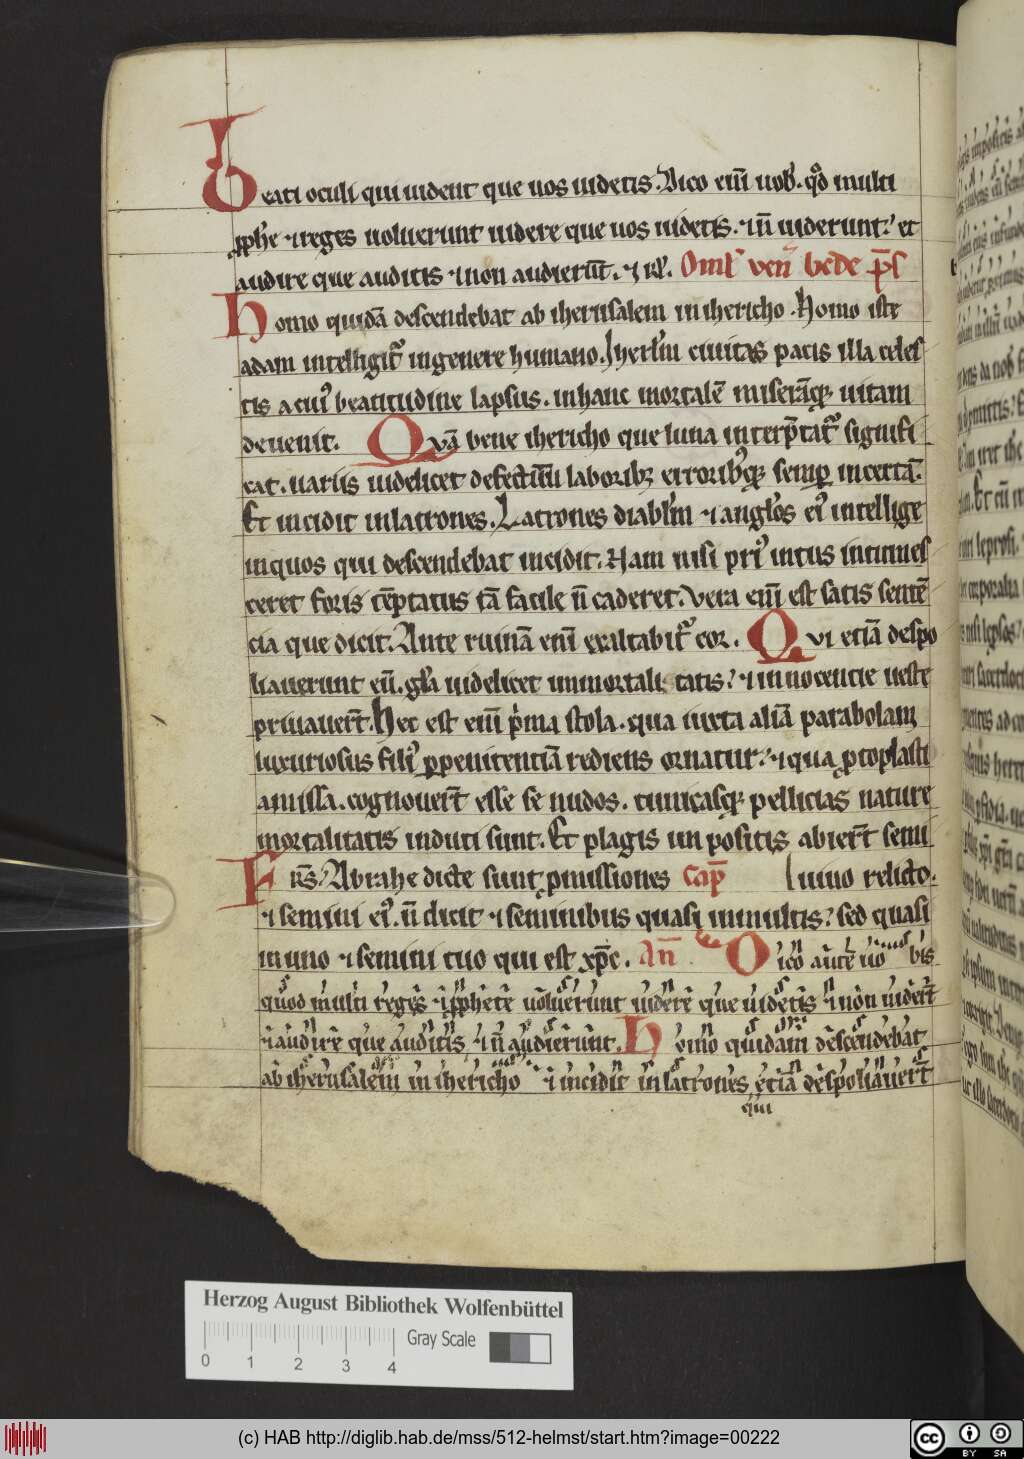 Beati oculi qui uident que uos uidetis. Dico eni̅ uob̕. qd̕ multi
ꝓphe ⁊ reges uoluerunt uidere que uos uidetis. ⁊ n̅ uiderunt. et
audire que auditis ⁊ non audieru̅t. ⁊ rl̕. Omł ven̅ bede p̅s
Homo quida̅ descendebat ab iherusalem in ihericho. Homo iste
adam intelligit᷑ in genere humano. Iherl̕m ciuitas pacis illa celes
tis a cui᷒ beatitudine lapsus. in hanc mortale̅ misera̅q; uitam
deuenit. Qva̅ bene ihericho que luna interp̅tat᷑ signifi
cat. uariis uidelicet defectuu̅ laborib; errorib᷒q; semp̲ incerta̅.
Et incidit in latrones. Latrones diabl̕m ⁊ angl̕os ei᷒ intellige
in quos qui descendebat incidit. Nam nisi pri᷒ intus intumes
ceret foris te̅ptatus ta̅ facile n̅ caderet. Vera eni̅ est satis sente̅
cia que dicit. Ante ruina̅ eni̅ exaltabit᷑ cor. Qvi etia̅ despo
liauerunt eu̅. gl̕a uidelicet immortalitatis. ⁊ innocentie ueste
priuauer̅t. Hec est eni̅ p̕ma stola. qua iuxta alia̅ parabolam
luxuriosus fili᷒ ꝑ penitentia̅ rediens ornatur. ⁊ qua ꝓtoplasti
amissa. cognouer̅t esse se nudos. tunicasq; pellicias nature
mortalitatis induti sunt. Et plagis inpositis abier̅t semi
Fr̅s. Abrahe dicte sunt ꝓmissiones Cap̅ uiuo relicto.
⁊ semini ei᷒. n̅ dicit ⁊ seminibus quasi in multis. sed quasi
in uno ⁊ semini tuo qui est xp̅c. An̅ Dico aute̅ uobis
quod multi reges ⁊ ꝓphete uoluerunt uidere que uidetis ⁊ non uider̅t
⁊ audire que auditis ⁊ n̅ audierunt. Homo quidam descendebat
ab iherusalem in ihericho ⁊ incidit in latrones etia̅ despoliauer̅t
qui
Herzog August Bibliothek Wolfenbüttel
Gray Scale
0 1 2 3 4
(c) HAB http://diglib.hab.de/mss/512-helmst/start.htm?image=00222
cc BY SA